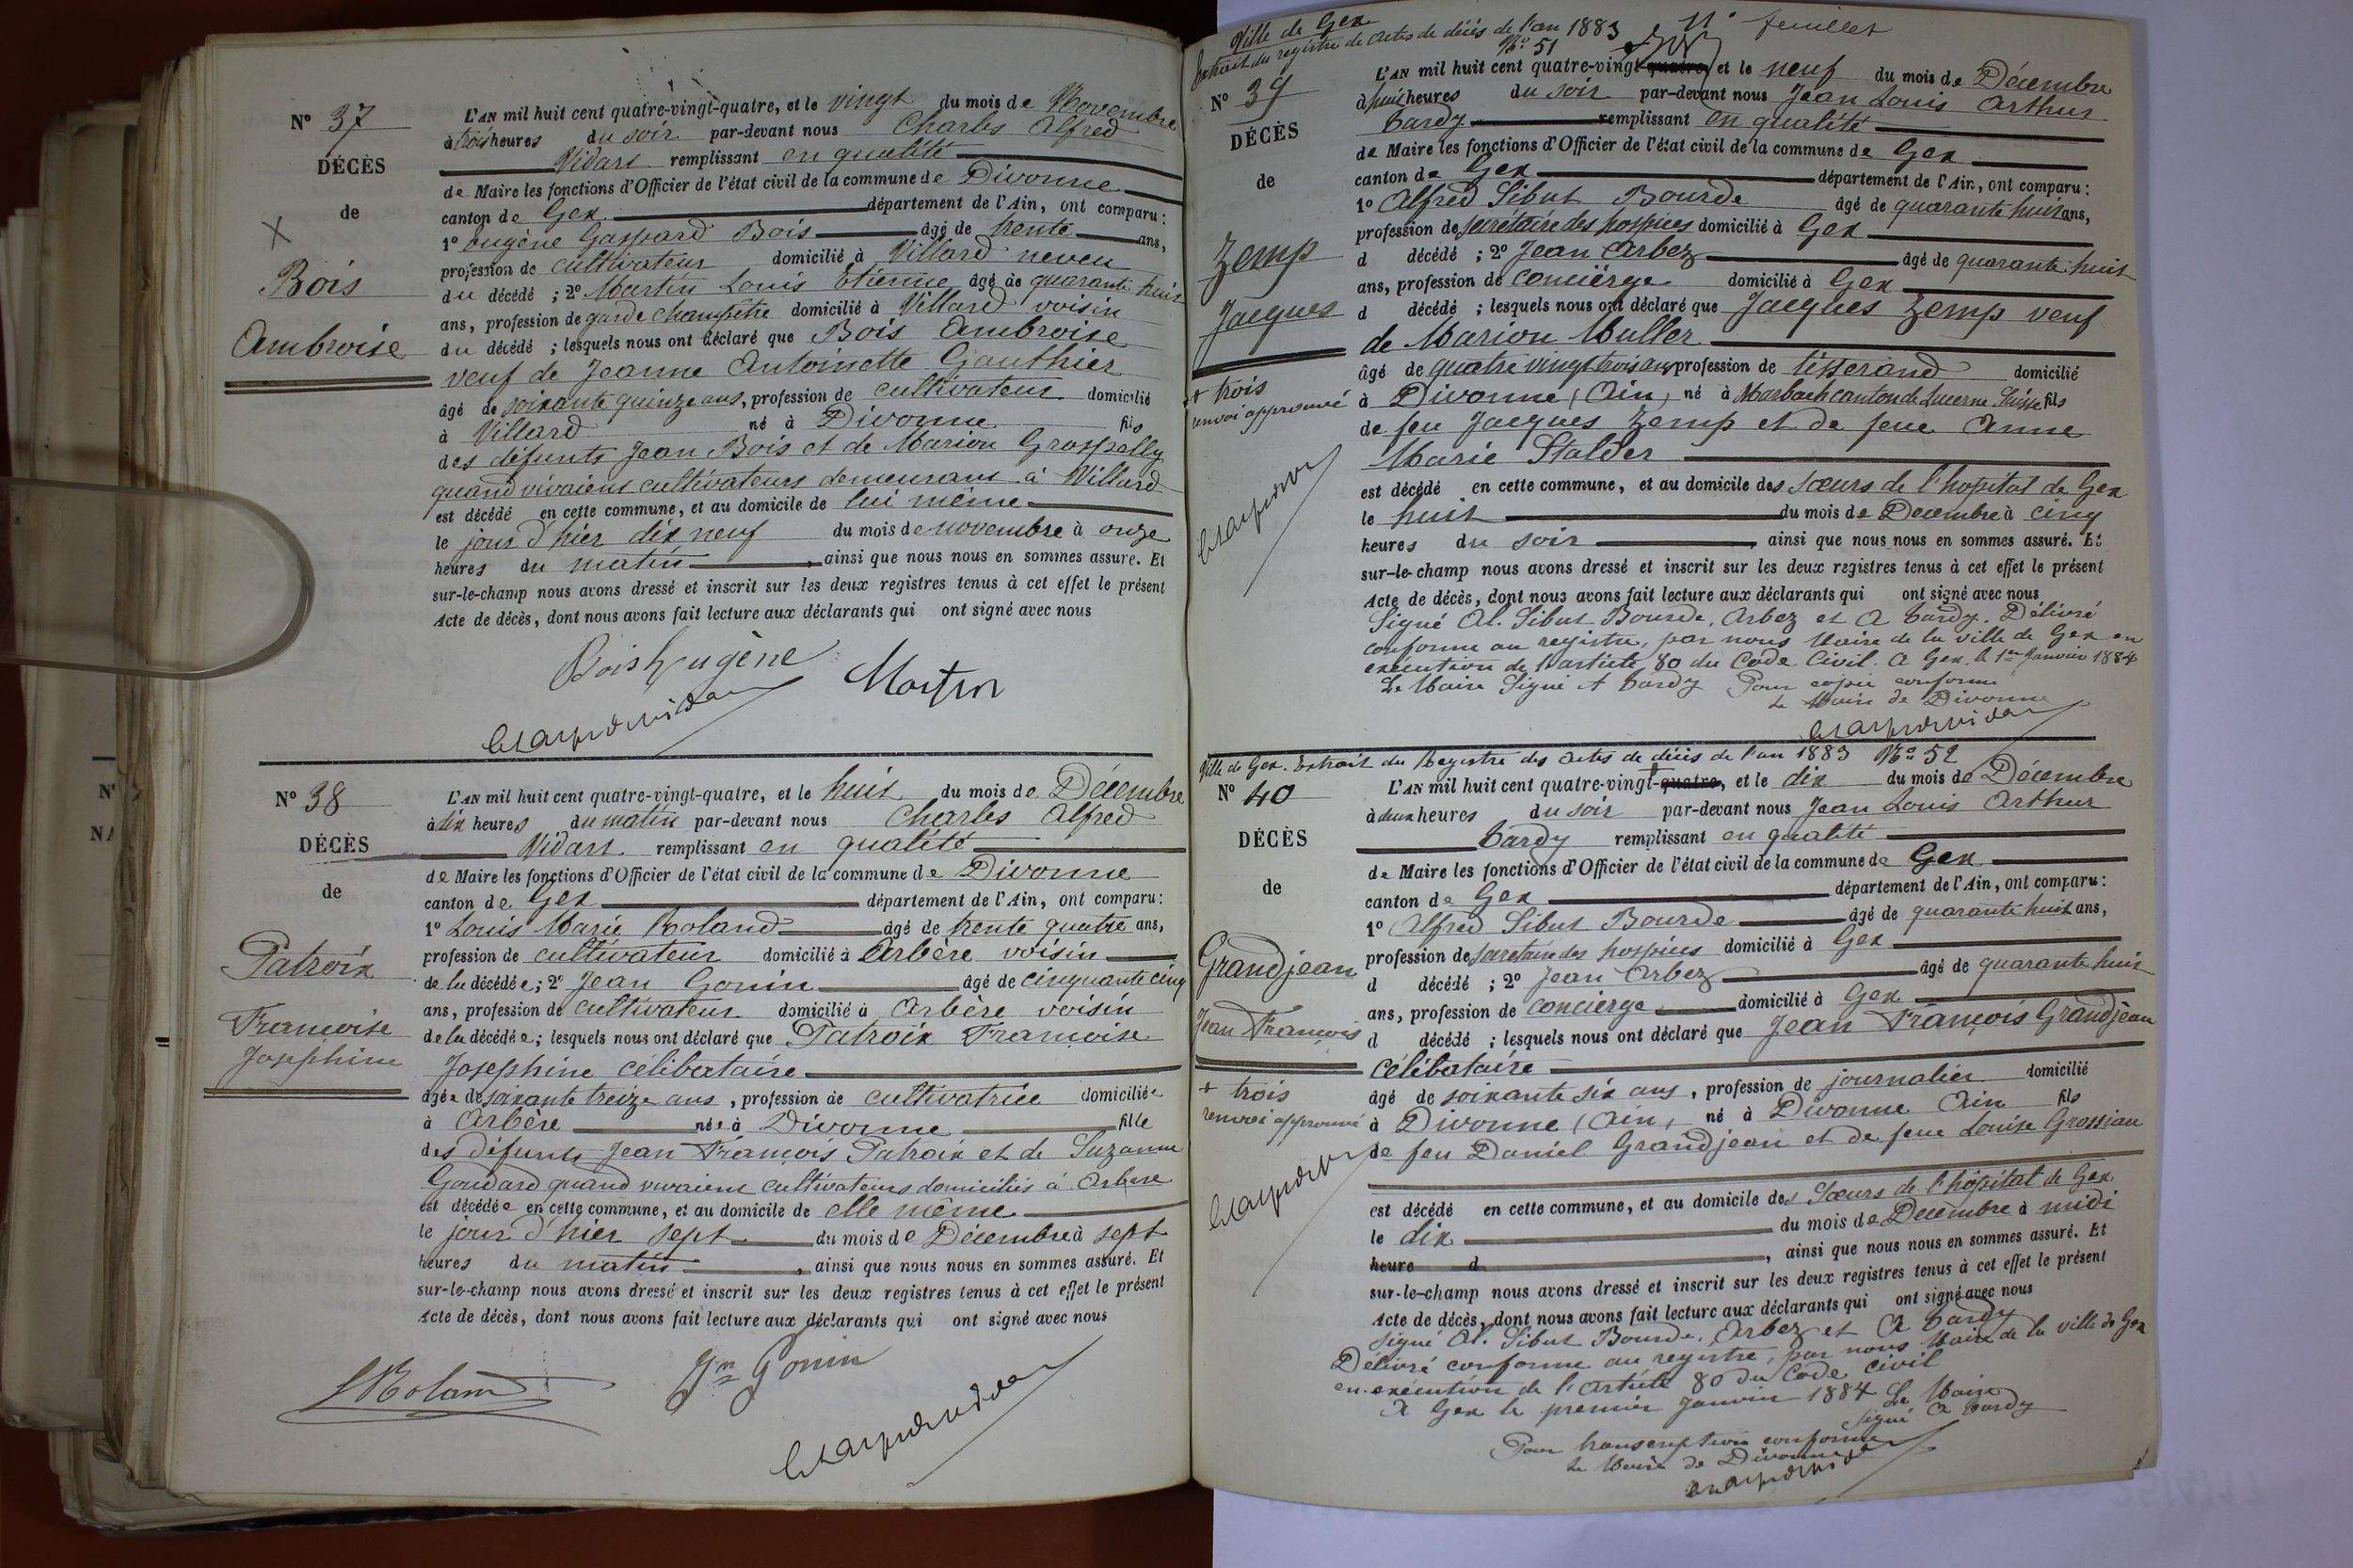 N° 37
DÉCÈS
de
Bois
Ambroise
L'AN mil huit cent quatre-vingt-quatre, et le vingt du mois de Novembre
à trois heures du soir par-devant nous Charles Alfred
Vidart remplissant en qualité
de Maire les fonctions d'Officier de l'état civil de la commune de Divonne
canton de Gex département de l'Ain, ont comparu :
1° Eugène Gaspard Bois âgé de trente ans,
profession de cultivateur domicilié à Villard neveu
du décédé ; 2° Martin Louis Etienne âgé de quarante huit
ans, profession de garde champêtre domicilié à Villard voisin
du décédé ; lesquels nous ont déclaré que Bois Ambroise
veuf de Jeanne Antoinette Gauthier
âgé de soixante quinze ans, profession de cultivateur domicilié
à Villard né à Divonne fils
des défunts Jean Bois et de Marion Grospelly
quand vivaient cultivateurs demeurant à Villard
est décédé en cette commune, et au domicile de lui même
le jour d'hier dix neuf du mois de novembre à onze
heures du matin, ainsi que nous nous en sommes assuré. Et
sur-le-champ nous avons dressé et inscrit sur les deux registres tenus à cet effet le présent
Acte de décès, dont nous avons fait lecture aux déclarants qui ont signé avec nous
Bois Eugène Martin
N° 38
DÉCÈS
de
Patroix
Françoise
Josephine
L'AN mil huit cent quatre-vingt-quatre, et le huit du mois de Décembre
à dix heures du matin par-devant nous Charles Alfred
Vidart remplissant en qualité
de Maire les fonctions d'Officier de l'état civil de la commune de Divonne
canton de Gex département de l'Ain, ont comparu :
1° Louis Marie Roland âgé de trente quatre ans,
profession de cultivateur domicilié à Arbère voisin
de la décédée ; 2° Jean Gonin âgé de cinquante cinq
ans, profession de cultivateur domicilié à Arbère voisin
de la décédée ; lesquels nous ont déclaré que Patroix Françoise
Josephine célibataire
âgée de soixante treize ans, profession de cultivatrice domiciliée
à Arbère née à Divonne fille
des défunts Jean François Patroix et de Suzanne
Goudard quand vivaient cultivateurs domiciliés à Arbère
est décédée en cette commune, et au domicile de elle même
le jour d'hier sept du mois de Décembre à sept
heures du matin, ainsi que nous nous en sommes assuré. Et
sur-le-champ nous avons dressé et inscrit sur les deux registres tenus à cet effet le présent
Acte de décès, dont nous avons fait lecture aux déclarants qui ont signé avec nous
LRoland Jn Gonin
11e feuillet
Ville de Gex
Extrait du registre de actes de décès de l'an 1883
N° 51
N° 39
DÉCÈS
de
Zemp
Jacques
+ trois
renvoi approuvé
L'AN mil huit cent quatre-vingt-quatre, et le neuf du mois de Décembre
heures du soir par-devant nous Jean Louis Arthur
Tardy remplissant en qualité
de Maire les fonctions d'Officier de l'état civil de la commune de Gex
canton de Gex département de l'Ain, ont comparu :
1° Alfred Sibut Bourde âgé de quarante huit ans,
profession de secrétaire des hospices domicilié à Gex
d décédé ; 2° Jean Arbez âgé de quarante huit
ans, profession de concièrge domicilié à Gex
d décédé ; lesquels nous ont déclaré que Jacques Zemp veuf
de Marion Muller
âgé de quatre vingt trois ans, profession de tisserand domicilié
à Divonne (Ain) né à Marbach canton de Lucerne Suisse fils
de feu Jacques Zemp et de feue Anne
Marie Stalder
est décédé en cette commune, et au domicile des sœurs de l'hopital de Gex
le huit du mois de Decembre à cinq
heures du soir, ainsi que nous nous en sommes assuré. Et
sur-le-champ nous avons dressé et inscrit sur les deux registres tenus à cet effet le présent
Acte de décès, dont nous avons fait lecture aux déclarants qui ont signé avec nous
Signé Al. Sibut Bourde, Arbez et A Tardy. Délivré
conforme au registre, par nous Maire de la ville de Gex en
exécution de l'article 80 du Code Civil. A Gex, le 1er Janvier 1884
Le Maire Signé A Tardy Pour copie conforme
Le Maire de Divonne
Ville de Gex. Extrait du Registre des actes de décès de l'an 1883 N° 52
N° 40
DÉCÈS
de
Grandjean
Jean François
+ trois
renvoi approuvé
L'AN mil huit cent quatre-vingt-quatre, et le dix du mois de Décembre
à deux heures du soir par-devant nous Jean Louis Arthur
Tardy remplissant en qualité
de Maire les fonctions d'Officier de l'état civil de la commune de Gex
canton de Gex département de l'Ain, ont comparu :
1° Alfred Sibut Bourde âgé de quarante huit ans,
profession de secretaire des hospices domicilié à Gex
d décédé ; 2° Jean Arbez âgé de quarante huit
ans, profession de concièrge domicilié à Gex
d décédé ; lesquels nous ont déclaré que Jean François Grandjean
célibataire
âgé de soixante six ans, profession de journalier domicilié
à Divonne (Ain) né à Divonne Ain fils
de feu Daniel Grandjean et de feue Louise Grosjean
est décédé en cette commune, et au domicile des Sœurs de l'hôpital de Gex
le dix du mois de Décembre à midi
heure d, ainsi que nous nous en sommes assuré. Et
sur-le-champ nous avons dressé et inscrit sur les deux registres tenus à cet effet le présent
Acte de décès, dont nous avons fait lecture aux déclarants qui ont signé avec nous
signé Al. Sibut Bourde, Arbez et A Tardy
Délivré conforme au registre, par nous Maire de la ville de Gex
en exécution de l'article 80 du Code civil
A Gex le premier Janvier 1884 Le Maire
signé A Tardy
Pour transcription conforme
Le Maire de Divonne